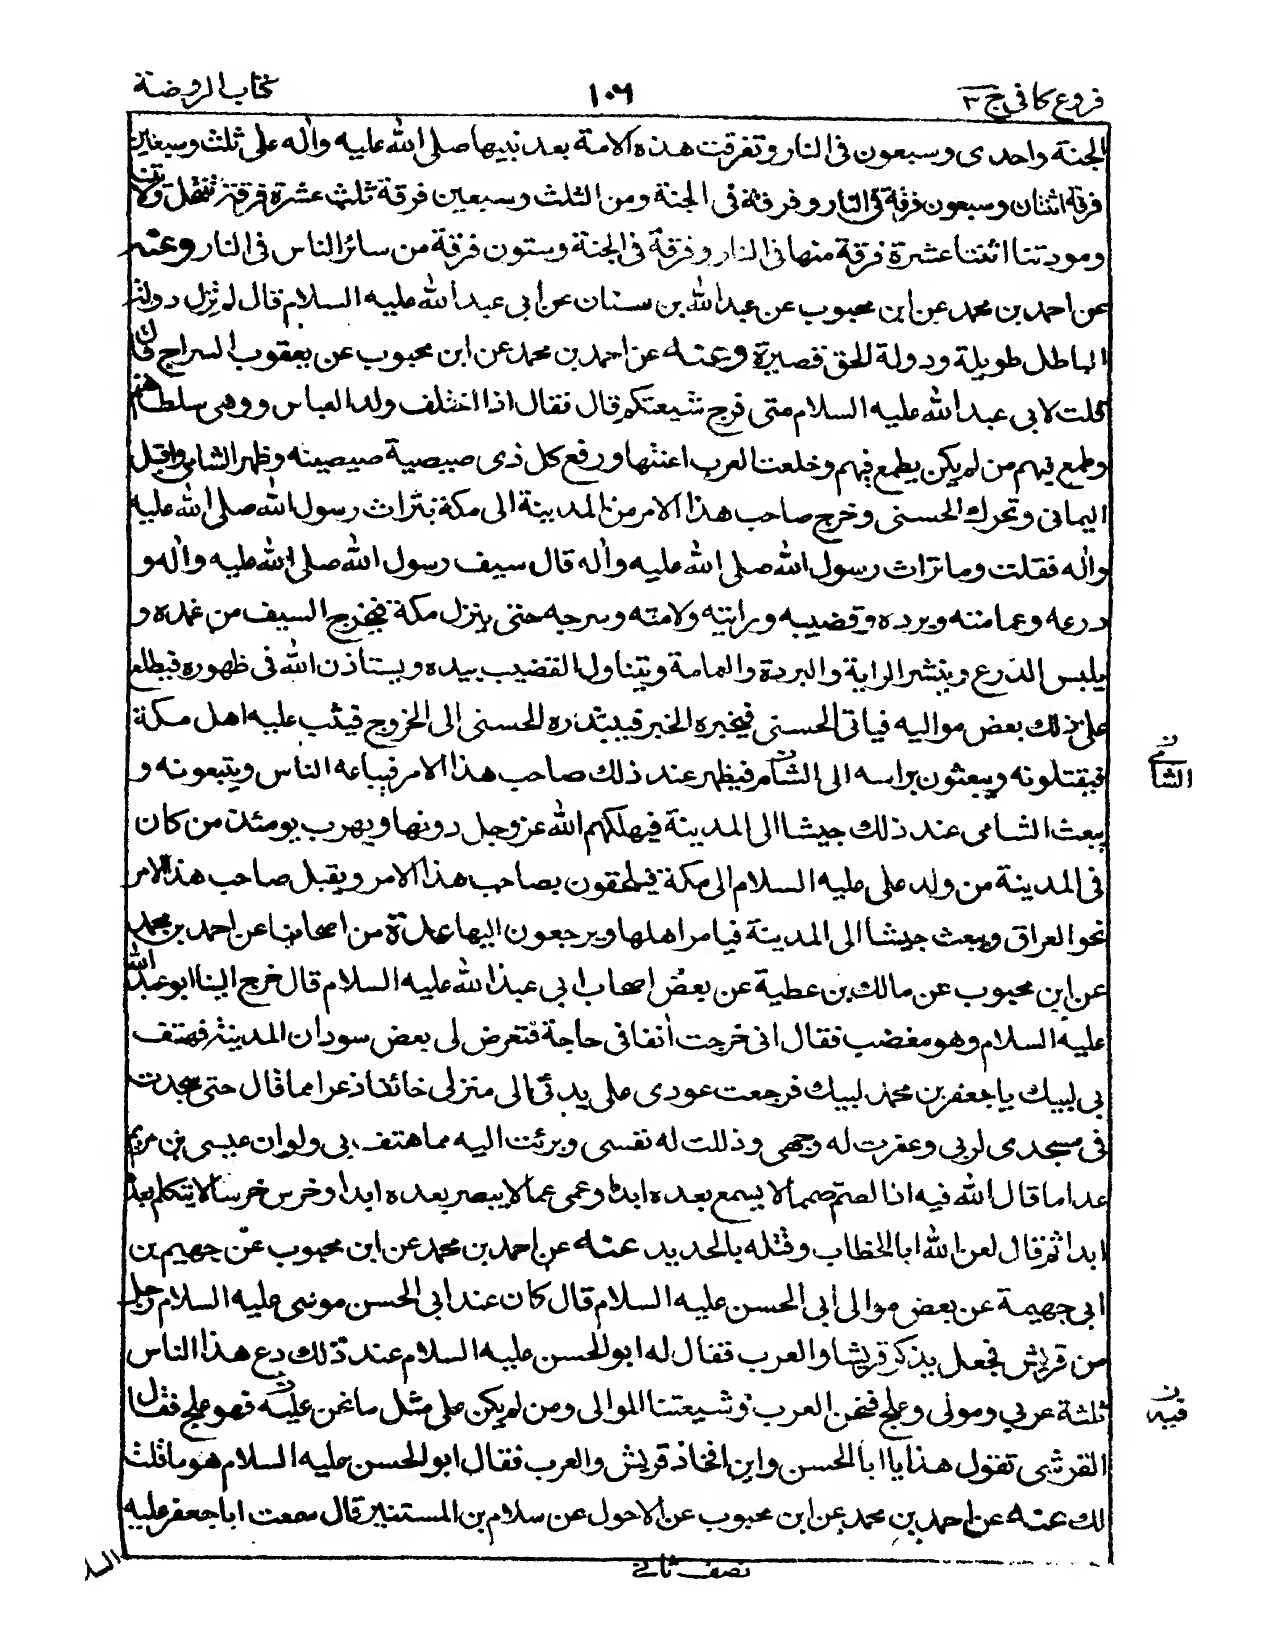 فروع كافى ج ٣
١٠٦
كتاب الروضة
الجنة واحدى وسبعون فى النار وتفرقت هذه الامة بعد نبيها صلى الله عليه واٰله على ثلث وسبعين
فرقة اثنتان وسبعون فرقة فى النار وفرقة فى الجنة ومن الثلث وسبعين فرقة ثلث عشرة فرقة تنتحل ولايتنا
ومودتنا اثنتا عشرة فرقة منها فى النار وفرقة فى الجنة وستون فرقة من سائر الناس فى النار وعنه
عن احمد بن محمد عن ابن محبوب عن عبد الله بن سنان عن ابى عبد الله عليه السلام قال لم تزل دولة
الباطل طويلة ودولة الحق قصيرة وعنه عن احمد بن محمد عن ابن محبوب عن يعقوب السراج قال
قلت لابى عبد الله عليه السلام متى فرج شيعتكم قال فقال اذا اختلف ولد العباس ووهى سلطانهم
وطمع فيهم من لم يكن يطمع فيهم وخلعت العرب اعنتها ورفع كل ذى صيصية صيصيته وظهر الشامى واقبل
اليمانى وتحرك الحسنى وخرج صاحب هذا الامر من المدينة الى مكة بتراث رسول الله صلى الله عليه
واٰله فقلت وما تراث رسول الله صلى الله عليه واٰله قال سيف رسول الله صلى الله عليه واٰله و
درعه وعمامته وبرده وقضيبه ورايته ولامته وسرجه حتى ينزل مكة فيخرج السيف من غمده و
يلبس الدرع وينشر الراية والبردة والعمامة ويتناول القضيب بيده ويستاذن الله فى ظهوره فيطلع
على ذلك بعض مواليه فياتى الحسنى فيخبره الخبر فيبتدره الحسنى الى الخروج فيثب عليه اهل مكة
فيقتلونه ويبعثون براسه الى الشام فيظهر عند ذلك صاحب هذا الامر فيبايعه الناس ويتبعونه و
ن
الشامى
يبعث الشامى عند ذلك جيشا الى المدينة فيهلكهم الله عز وجل دونها ويهرب يومئذ من كان
فى المدينة من ولد على عليه السلام الى مكة فيلحقون بصاحب هذا الامر ويقبل صاحب هذا الامر
نحو العراق ويبعث جيشا الى المدينة فيامر اهلها ويرجعون اليها عدة من اصحابنا عن احمد بن محمد
عن ابن محبوب عن مالك بن عطية عن بعض اصحاب ابى عبد الله عليه السلام قال خرج الينا ابو عبد الله
عليه السلام وهو مغضب فقال انى خرجت اٰنفا فى حاجة فتعرض لى بعض سودان المدينة فهتف
بى لبيك يا جعفر بن محمد لبيك فرجعت عودى على بدئى الى منزلى خائفا ذعرا مما قال حتى سجدت
فى مسجدى لربى وعفرت له وجهى وذللت له نفسى وبرئت اليه مما هتف بى ولو ان عيسى بن مريم
عدا ما قال الله فيه اذا لصم صمما لا يسمع بعده ابدا وعمى عما لا يبصر بعده ابدا وخرس خرسا لا يتكلم بعده
ابدا ثم قال لعن الله ابا الخطاب وقتله بالحديد عنه عن احمد بن محمد عن ابن محبوب عن جهيم بن
ابى جهيمة عن بعض موالى ابى الحسن عليه السلام قال كان عند ابى الحسن موسى عليه السلام رجل
من قريش فجعل يذكر قريشا والعرب فقال له ابو الحسن عليه السلام عند ذلك دع هذا الناس
ثلثة عربى ومولى وعلج فنحن العرب وشيعتنا الموالى ومن لم يكن على مثل ما نحن عليه فهو علج فقال
ن
فيه
القرشى تقول هذا يا ابا الحسن واين افخاذ قريش والعرب فقال ابو الحسن عليه السلام هو ما قلت
لك عنه عن احمد بن محمد عن ابن محبوب عن الاحول عن سلام بن المستنير قال سمعت ابا جعفر عليه
السلا
نصف ثانى